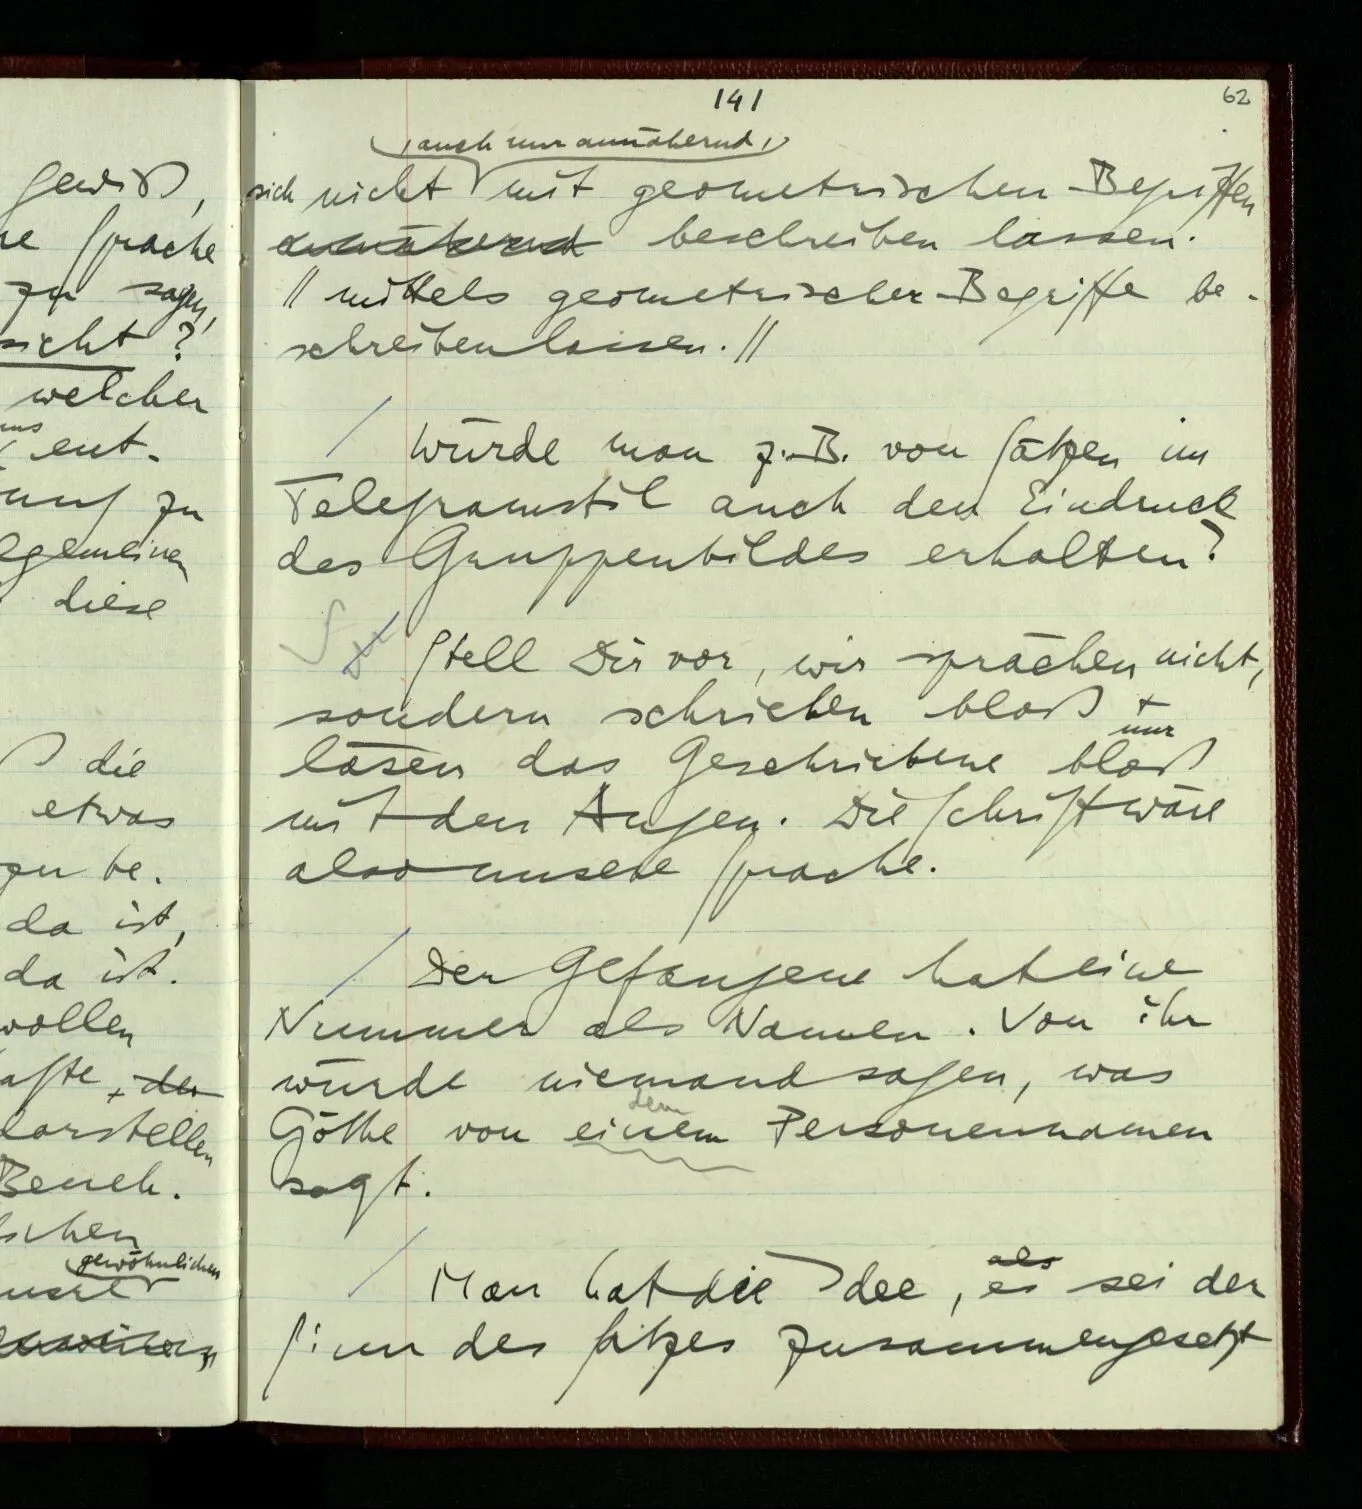 gewiß,
Sprache
zu sagen,
nicht?
welcher
uns
ent-
zu
allgemeinen
diese
ß die
etwas
zu be-
da ist,
da ist.
wollen
+ der
darstellen
Beneh-
gewöhnlichen
141
62
auch nur annähernd
sich nicht mit geometrischen Begriffen
annähernd beschreiben lassen.
// mittels geometrischer Begriffe be-
schreiben lassen. //
/ Würde man z.B. von Sätzen im
Telegramstil auch den Eindruck
des Gruppenbildes erhalten?
Stell Dir vor, wir sprächen nicht,
sondern schrieben bloß +
nur
läsen das Geschriebene bloß
mit den Augen. Die Schrift wäre
also unsere Sprache.
/ Der Gefangene hat eine
Nummer als Namen. Von ihr
würde niemand sagen, was
dem
Göthe von einem Personennamen
sagt.
als
/ Man hat die Idee, es sei der
Sinn des Satzes zusammengesetzt